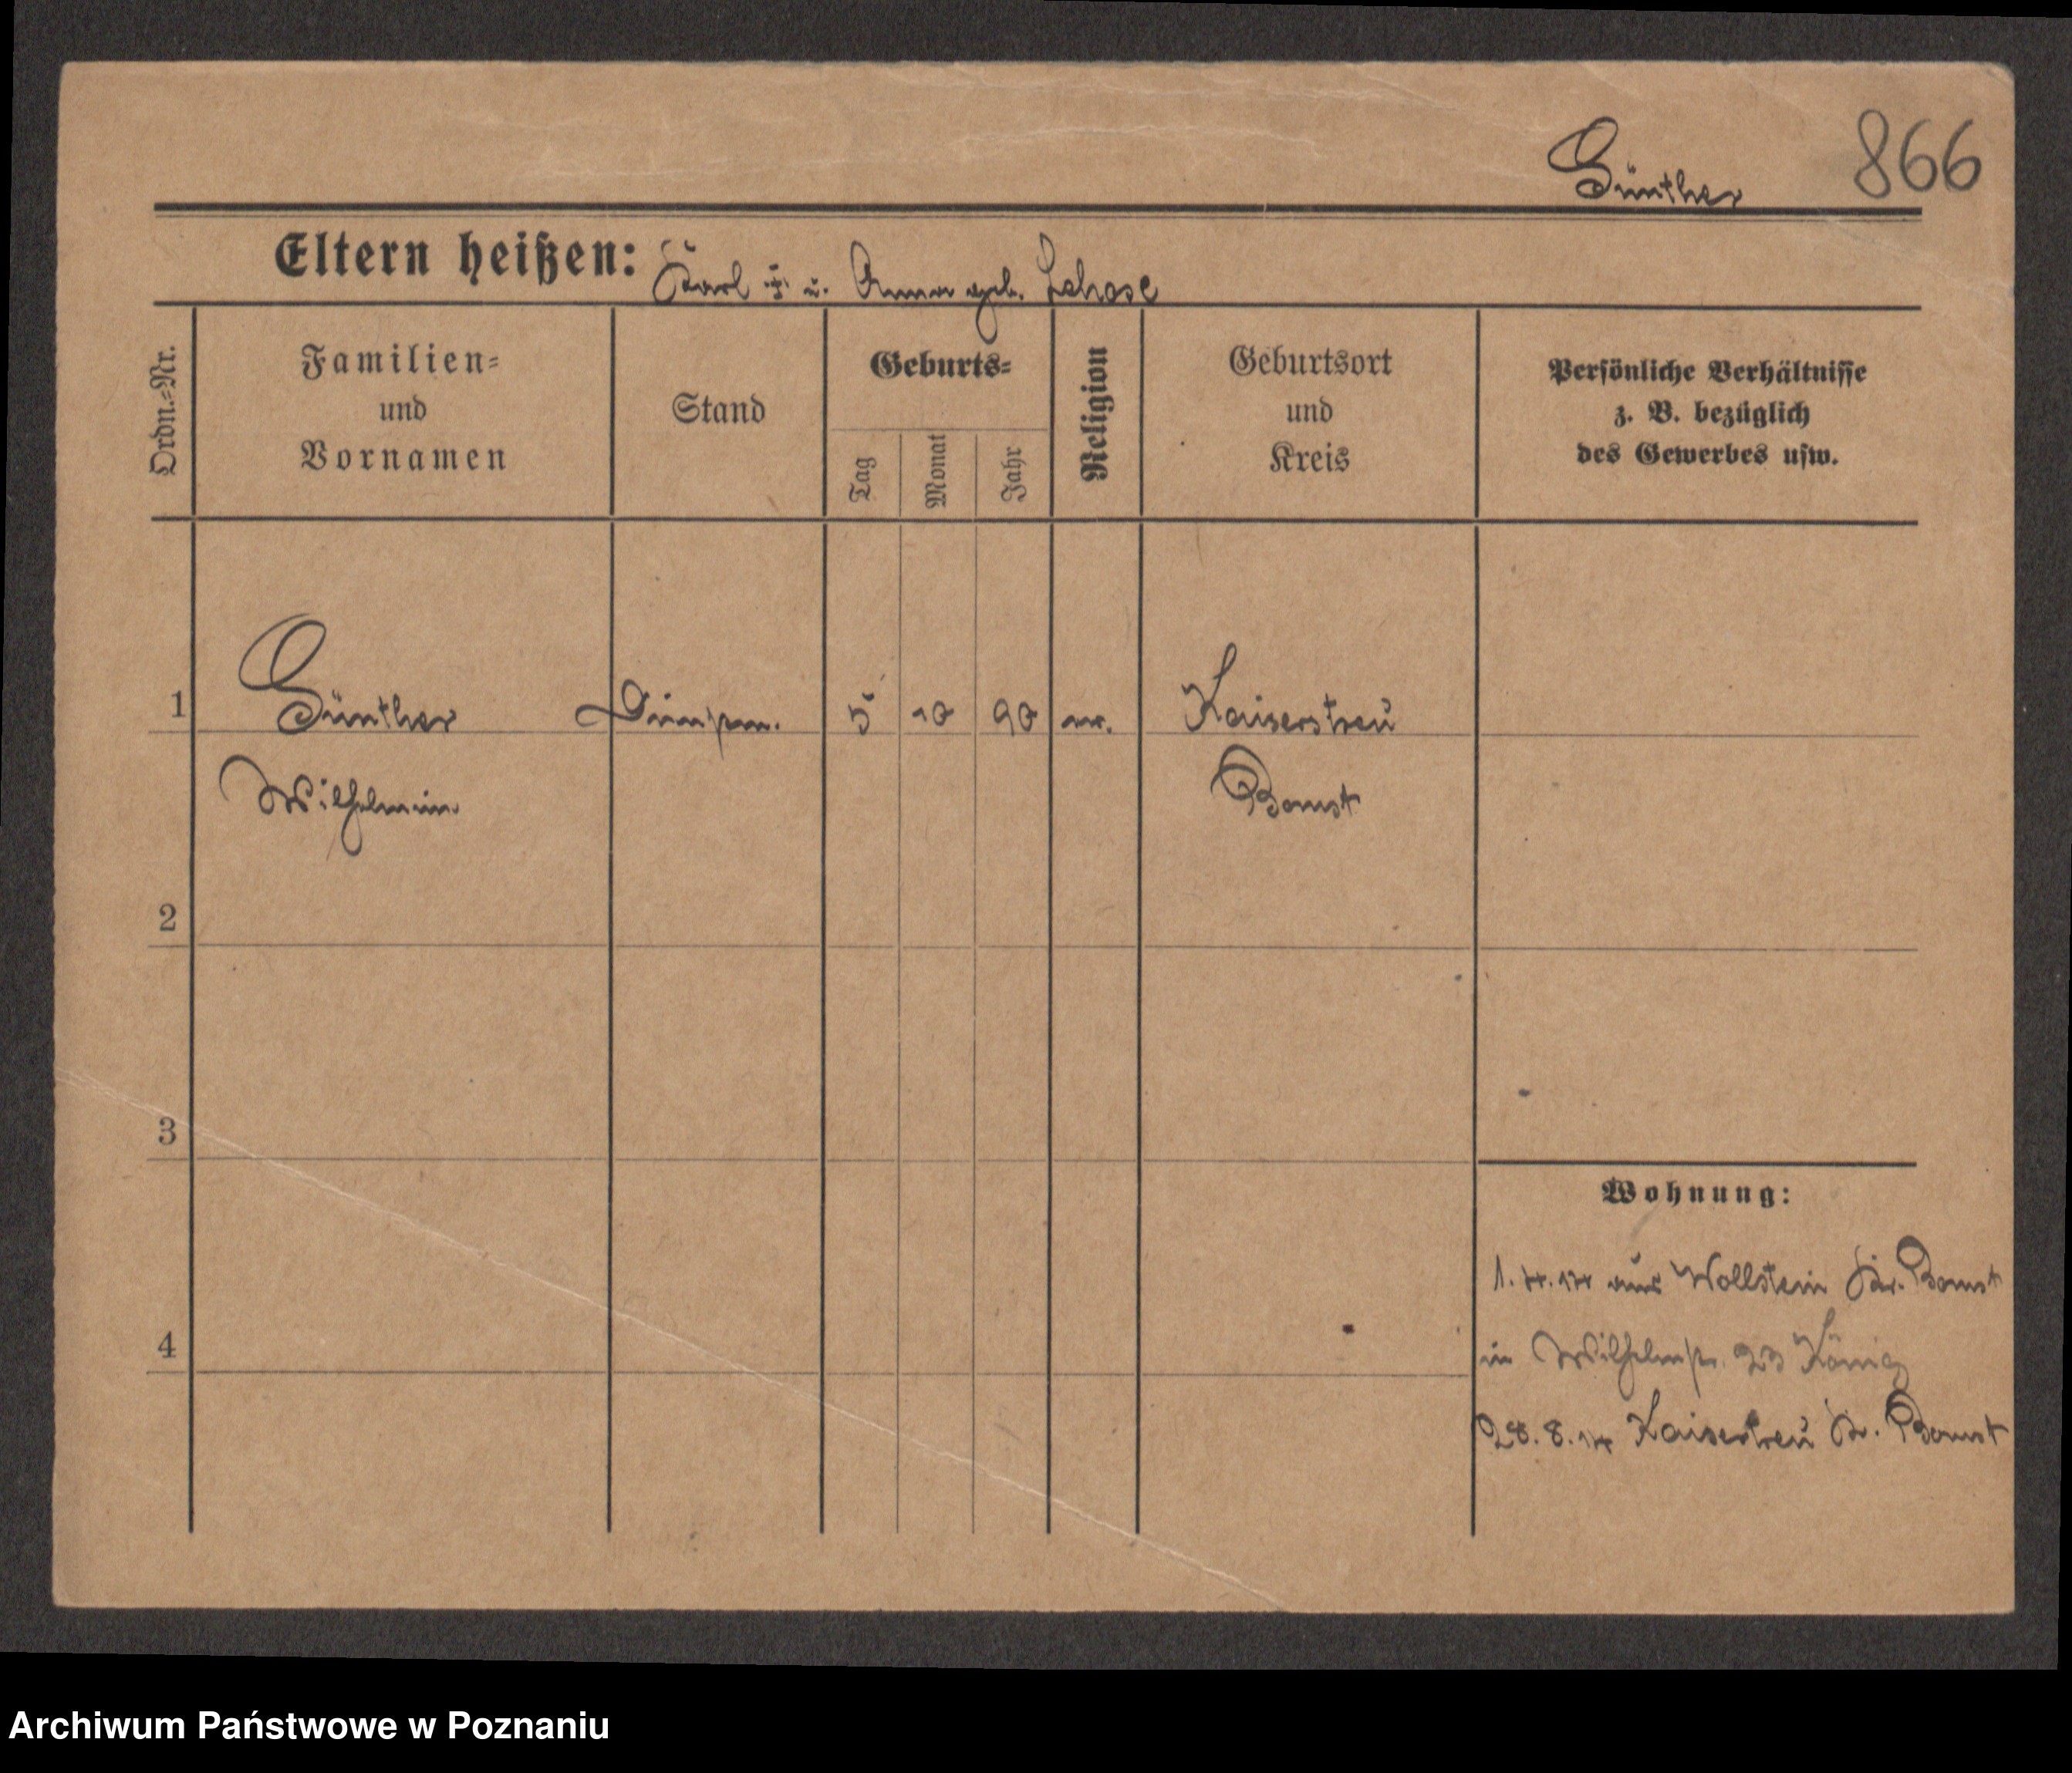 Günther 866
Eltern heißen: Karl † u. Anna geb. Lehase
Ordn.-Nr.
Familien-
und
Vornamen
Stand
Geburts-
Tag
Monat
Jahr
Religion
Geburtsort
und
Kreis
Persönliche Verhältnisse
z. B. bezüglich
des Gewerbes usw.
1 Günther 5 10 90 ev. Kaiserstreu
Wilhelmine Bomst
2
3
4
Wohnung:
1.4.14 aus Wollstein Kr. Bomst
in Wilhelmstr. 23 König
28.8.14 Kaisertreu Kr. Bomst
Archiwum Państwowe w Poznaniu